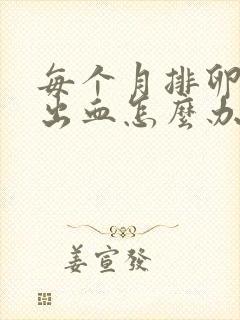 每个月排卵
出血怎麼办
姜宣發